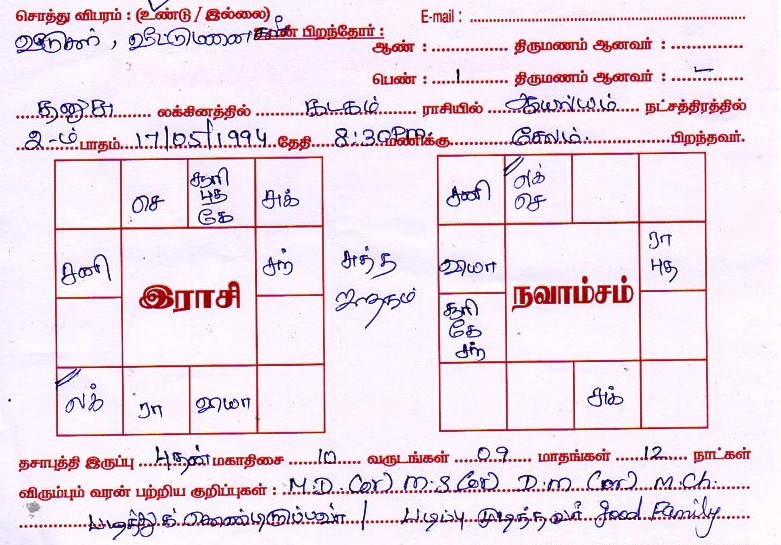 சொத்து விபரம் : (உண்டு / இல்லை)
E-mail :
வீட்டுமனை
உடன் பிறந்தோர் :
ஆண் : திருமணம் ஆனவர் :
பெண் : 1 திருமணம் ஆனவர் : –
தனுசு லக்கினத்தில் கடகம் ராசியில் ஆயில்யம் நட்சத்திரத்தில்
2-ம் பாதம் 17/05/1994 தேதி 8:30PM மணிக்கு சேலம். பிறந்தவர்.
செ சூரி புத கே சுக்
சனி சந்
இராசி
லக் ரா வியா
சுத்த ஜாதகம்
சனி லக் செ
வியா ரா புத
நவாம்சம்
சூரி கே சந்
சுக்
தசாபுத்தி இருப்பு புதன் மகாதிசை 10 வருடங்கள் 09 மாதங்கள் 12 நாட்கள்
விரும்பும் வரன் பற்றிய குறிப்புகள் : M.D. (or) M.S (or) D.M. (or) M.Ch.
படித்துக் கொண்டிருப்பவர் / படிப்பு முடித்தவர் Good Family